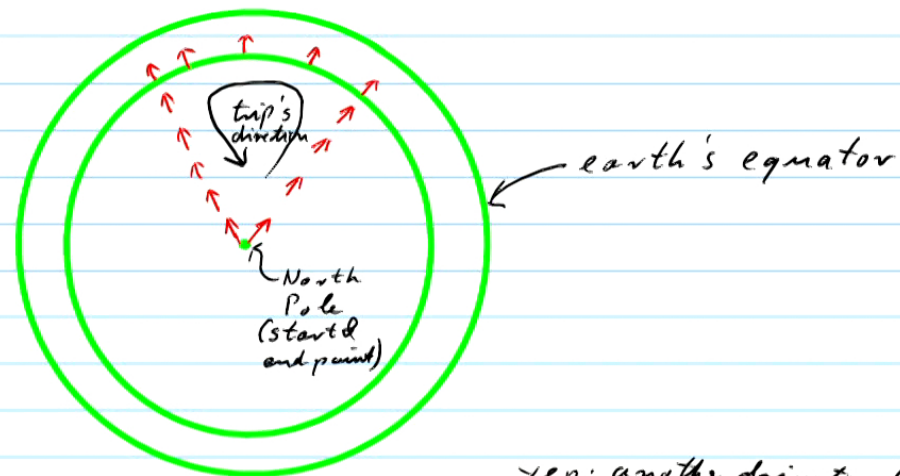 trip's
direction
earth's equator
North
Pole
(start &
end point)
yep: another